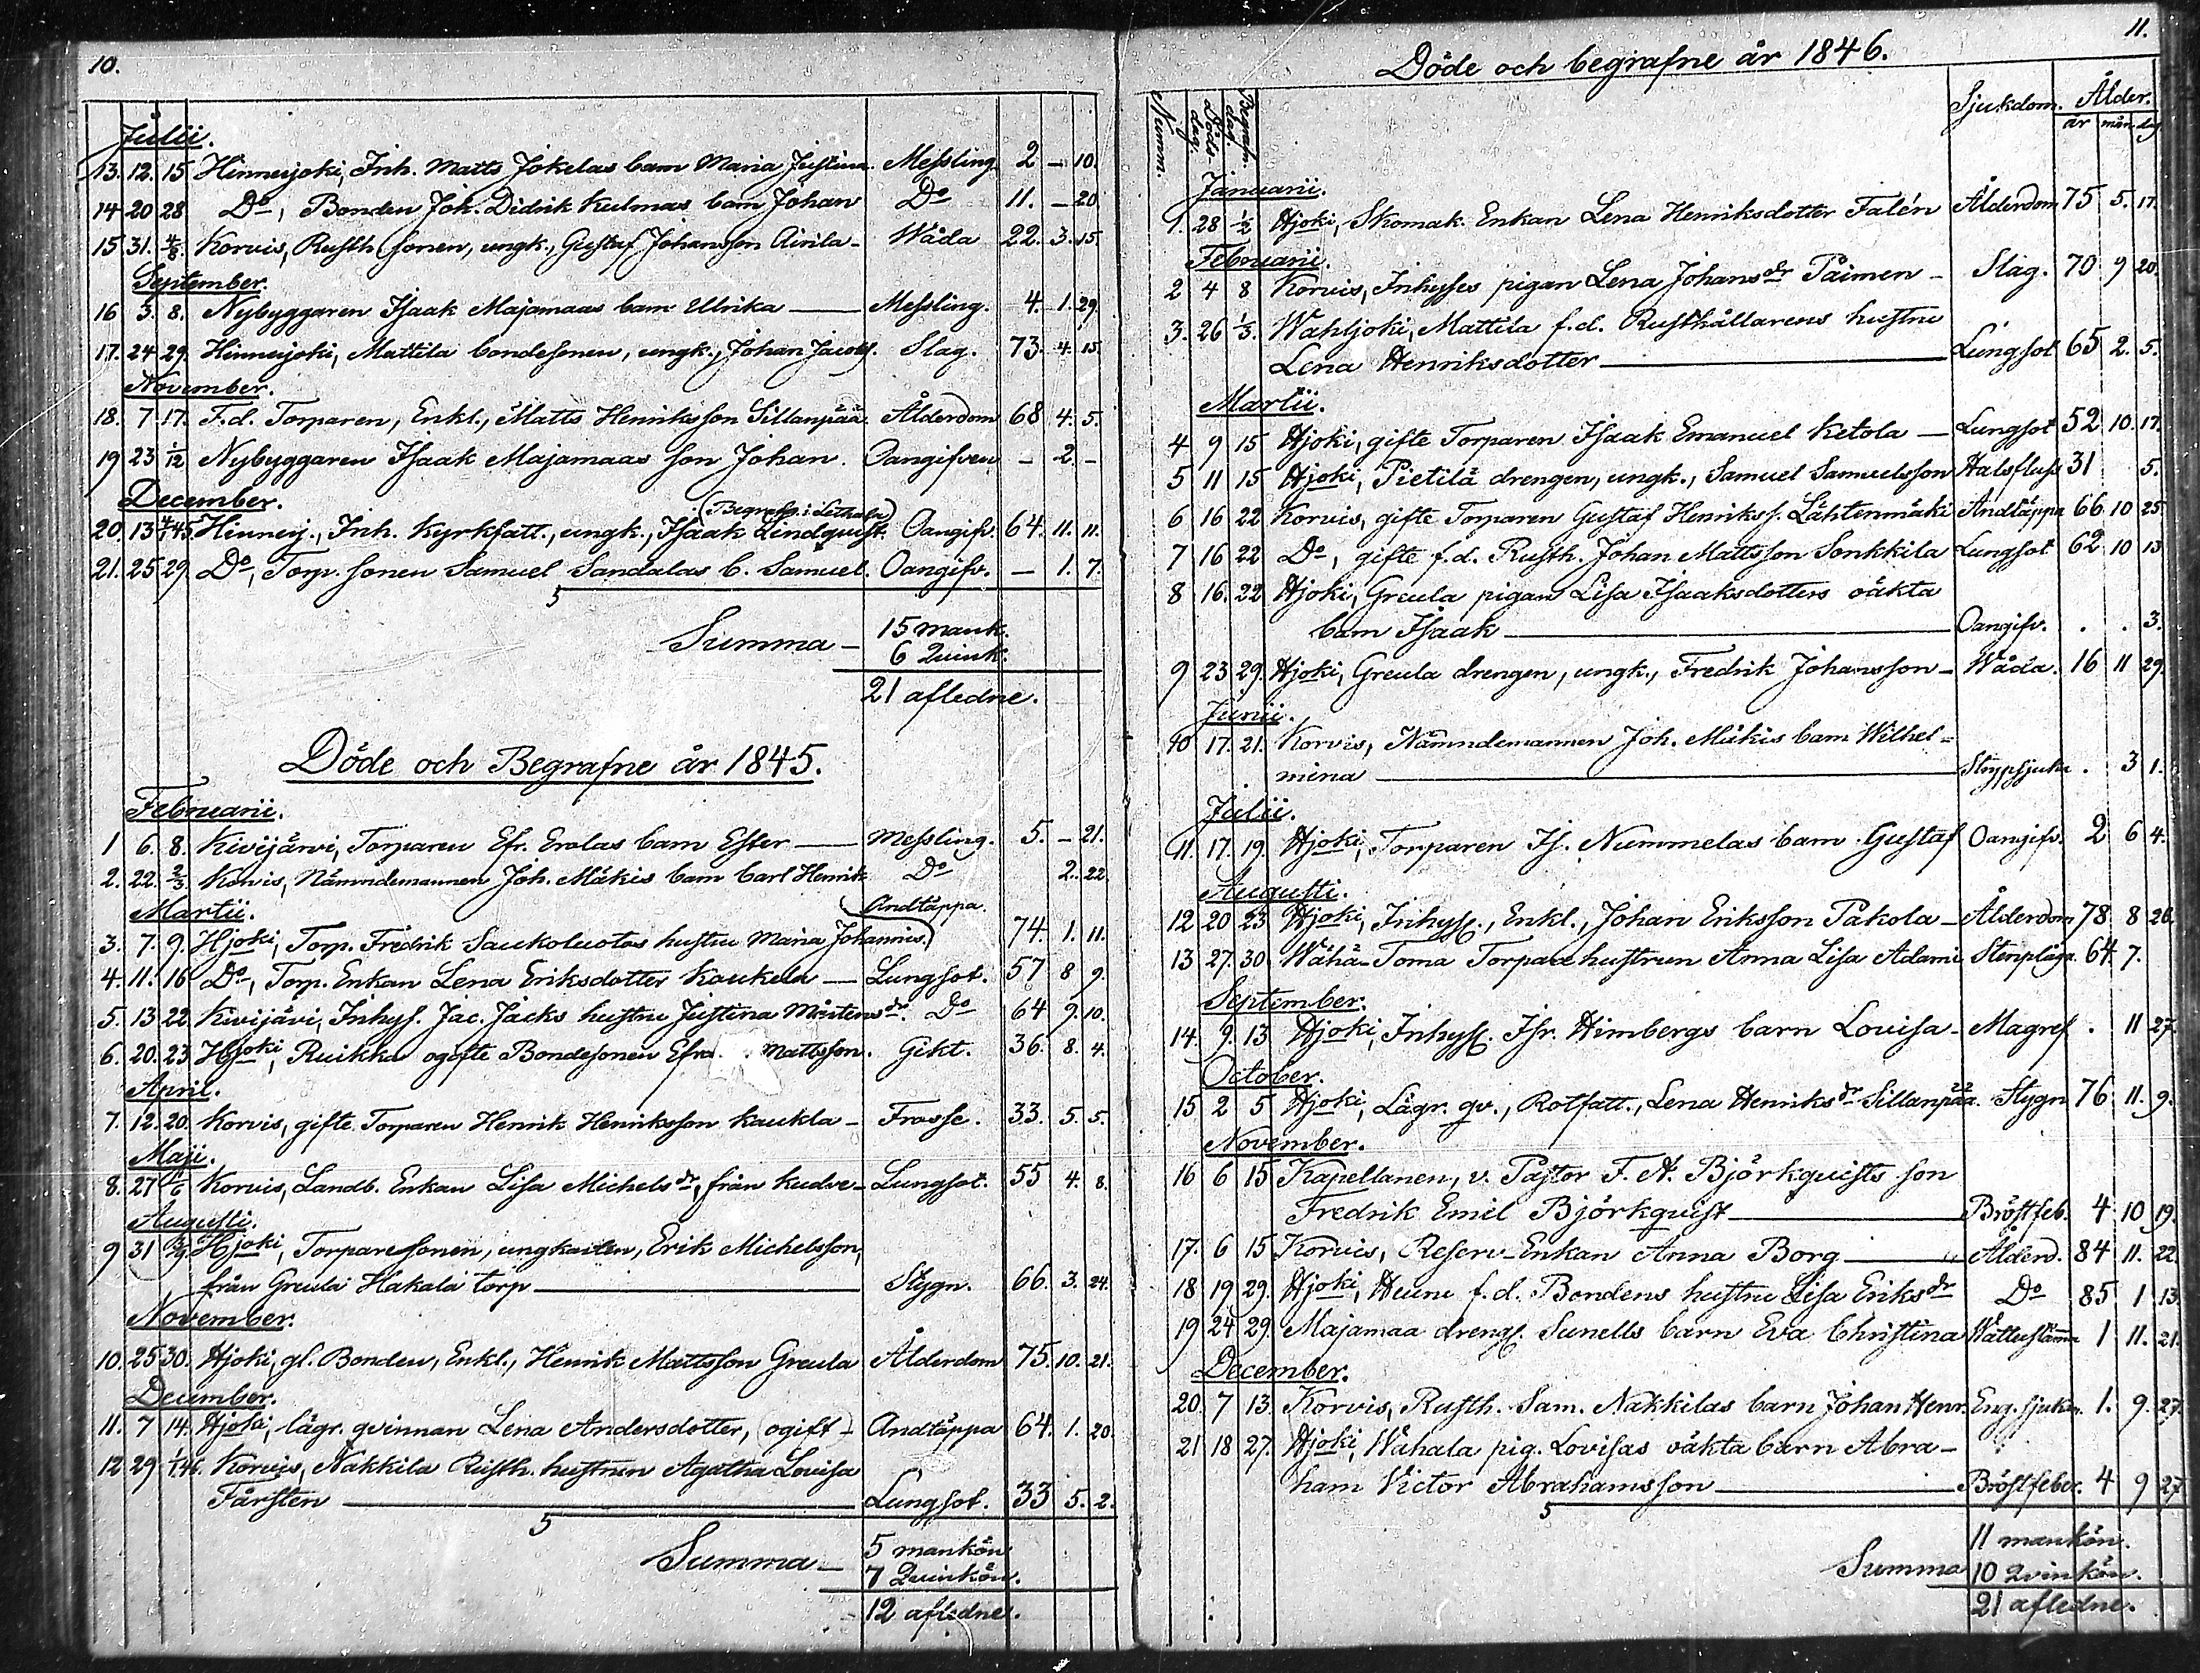 10.
Julii.
13. 12. 15 Hinnerjoki, Inh. Matts Jokelas barn Maria Justina. Messling. 2 – 10.
14 20 28 Do, Bonden Joh. Didrik Kulmas barn Johan Do 11. – 20
15 31. 4/8. Korvis, Rusth. sonen, ungk., Gustaf Johansson Airila – Wåda 22. 3. 15.
September.
16 3. 8. Nybyggaren Isaak Majamaas barn Ulrika — Messling. 4. 1. 29
17. 24 29. Hinnerjoki, Mattila bondesonen, ungk., Johan Jacobs. Slag. 73. 4. 15.
November.
18. 7. 17. F.d. Torparen, Enkl., Matts Henriksson Sillanpää. Ålderdom 68 4. 5.
19 23 1/12 Nybyggaren Isaak Majamaas son Johan. Oangifven – 2 –
December.
(Begrafn. i Lethala)
20. 13 4/1 45. Hinnerj., Inh. Kyrkfatt., ungk., Isaak Lindquist. Oangifv. 64. 11. 11.
21. 25 29. Do, Torp. sonen Samuel Sandalas b. Samuel. Oangifv. — 1. 7.
Summa – 15 mank.
6 Quink.
21 afledne.
Döde och Begrafne år 1845.
Februarii.
1 6. 8. Kivijärvi, Torparen Efr. Erolas barn Ester — Messling. 5. – 21.
2. 22. 2/3 Korvis, Nämndemannen Joh. Mäkis barn Carl Henrik Do 2. 22
Martii.
Andtäppa.
3. 7. 9. Hjoki, Torp. Fredrik Saukoluotos hustru Maria Johannis. 74. 1. 11.
4. 11. 16 Do, Torp. Enkan Lena Eriksdotter Kaukela — Lungsot. 57 8 9.
5. 13 22 Kivijävi, Inhys. Jac. Jacks hustru Justina Mårtensdr. Do 64 9. 10.
6. 20. 23 Hjoki, Ruikka ogifte Bondesonen Efra Mattsson. Gikt. 36. 8. 4.
April.
7. 12. 20. Korvis, gifte Torparen Henrik Henriksson Kaukla – Frosse. 33. 5. 5.
Maji.
8. 27 1/6 Korvis, Landb. Enkan Lisa Michelsdr, från Kudve – Lungsot. 55 4. 8.
Augusti.
9 31 Hjoki, Torparesonen, ungkarlen, Erik Michelsson,
från Greula Hakala torp — Stygn. 66. 3. 24.
November.
10. 25 30. Hjoki, gl. Bonden, Enkl., Henrik Mattsson Greula Ålderdom 75. 10. 21.
December.
11. 7 14. Hjoki, lägr. qvinnan Lena Andersdotter, ogift – Andtäppa 64. 1. 20.
12 29 1/1 46. Korvis, Nakkila Rusth. hustrun Agatha Lovisa
Färsten — Lungsot. 33 5. 2.
Summa – 5 mankön
7 Quinkön.
12 afledne.
11.
Döde och begrafne år 1846.
Numm. Döds dag. Begrafn. dag. Sjukdom. Ålder.
år mån. dag
Januarii.
1. 28 1/2 Hjoki, Skomak. Enkan Lena Henriksdotter Falén Ålderdom 75 5. 17.
Februarii.
2 4 8 Korvis, Inhyses pigan Lena Johansdr Paimen – Slag. 70 9 20.
3. 26 1/3. Wahljoki, Mattila f.d. Rusthållarens hustru
Lena Henriksdotter — Lungsot 65 2. 5.
Martii.
4 9 15 Hjoki, gifte Torparen Isaak Emanuel Ketola — Lungsot 52 10. 17.
5 11 15 Hjoki, Pietilä drengen, ungk., Samuel Samuelsson Halsfluss 31 5.
6 16 22 Korvis, gifte Torparen Gustaf Henrikss. Lähtenmäki Andtäppa 66. 10 25.
7 16 22 Do, gifte f.d. Rusth. Johan Mattsson Sonkkila Lungsot 62 10 13
8 16. 22 Hjoki, Greula pigan Lisa Isaaksdotters oäkta
barn Isaak — Oangifv. . . 3.
9 23 29. Hjoki, Greula drengen, ungk., Fredrik Johansson – Wåda. 16 11 29.
Junii.
10 17. 21. Korvis, Nämndemannen Joh. Mäkis barn Wilhel=
mina — Strypsjuka . 3 1.
Julii.
11. 17. 19. Hjoki, Torparen Is. Nummelas barn Gustaf Oangifv. 2 6 4.
Augusti.
12 20 23 Hjoki, Inhyss., Enkl., Johan Eriksson Pakola – Ålderdom 78. 8 26.
13 27. 30. Wähä-Toma Torpare hustrun Anna Lisa Adami Stenplåga 64. 7.
September.
14. 9. 13. Hjoki, Inhyss. Isr. Himbergs barn Lovisa – Magref . 11 27.
October.
15 2 5 Hjoki, Lägr. qv., Rotfatt., Lena Henriksdr Sillanpää. Stygn 76 11. 9.
November.
16 6 15 Kapellanen, v. Pastor F. A. Björkquists son
Fredrik Emil Björkquist — Bröstfeb. 4 10 19.
17. 6 15 Korvis, Reserv-Enkan Anna Borg — Ålderd. 84 11. 22.
18 19 29. Hjoki, Heunu f.d. Bondens hustru Lisa Eriksdr Do 85 1 13.
19 24 29. Majamaa drengs. Sunells barn Eva Christina Wattusämna 1 11. 21.
December.
20. 7 13. Korvis, Rusth. Sam. Nakkilas barn Johan Henr. Eng. sjukn. 1. 9. 27.
21 18 27. Hjoki, Wahala pig. Lovisas oäkta barn Abra-
ham Victor Abrahamsson — Bröstfeber. 4 9 27
Summa 11 mankön.
10 qvinkön.
21 afledne.